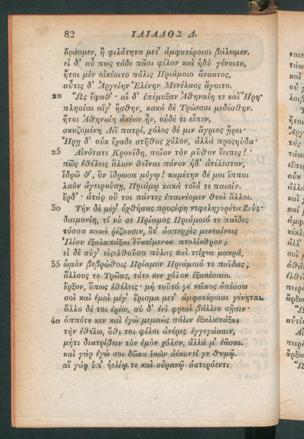 82 ΙΛΙΑΔΟΣ Δ.
ὄρσομεν, ἢ φιλότητα μετ' ἀμφοτέροισι βάλωμεν.
εἰ δ' αὖ πως τόδε πᾶσι φίλον καὶ ἡδὺ γένοιτο,
ἤτοι μὲν οἰκέοιτο πόλις Πριάμοιο ἄνακτος,
αὖτις δ' Ἀργείην Ἑλένην Μενέλαος ἄγοιτο.
20 Ὣς ἔφαθ'· αἱ δ' ἐπέμυξαν Ἀθηναίη τε καὶ Ἥρη·
πλησίαι αἵγ' ἥσθην, κακὰ δὲ Τρώεσσι μεδέσθην.
ἤτοι Ἀθηναίη ἀκέων ἦν, οὐδέ τι εἶπεν,
σκυζομένη Διῒ πατρί, χόλος δέ μιν ἄγριος ᾕρει·
Ἥρῃ δ' οὐκ ἔχαδε στῆθος χόλον, ἀλλὰ προσηύδα·
25 Αἰνότατε Κρονίδη, ποῖον τὸν μῦθον ἔειπες!
πῶς ἐθέλεις ἅλιον θεῖναι πόνον ἠδ' ἀτέλεστον,
ἱδρῶ θ', ὃν ἵδρωσα μόγῳ! καμέτην δέ μοι ἵπποι
λαὸν ἀγειρούσῃ, Πριάμῳ κακὰ τοῖό τε παισίν.
ἔρδ'· ἀτὰρ οὔ τοι πάντες ἐπαινέομεν θεοὶ ἄλλοι.
30 Τὴν δὲ μέγ' ὀχθήσας προσέφη νεφεληγερέτα Ζεύς·
δαιμονίη, τί νύ σε Πρίαμος Πριάμοιό τε παῖδες
τόσσα κακὰ ῥέζουσιν, ὅτ' ἀσπερχὲς μενεαίνεις
Ἰλίου ἐξαλαπάξαι ἐϋκτίμενον πτολίεθρον;
εἰ δὲ σύγ' εἰσελθοῦσα πύλας καὶ τείχεα μακρά,
35 ὠμὸν βεβρώθοις Πρίαμον Πριάμοιό τε παῖδας,
ἄλλους τε Τρῶας, τότε κεν χόλον ἐξακέσαιο.
ἔρξον, ὅπως ἐθέλεις· μὴ τοῦτό γε νεῖκος ὀπίσσω
σοὶ καὶ ἐμοὶ μέγ' ἔρισμα μετ' ἀμφοτέροισι γένηται.
ἄλλο δέ τοι ἐρέω, σὺ δ' ἐνὶ φρεσὶ βάλλεο σῇσιν·
40 ὁππότε κεν καὶ ἐγὼ μεμαὼς πόλιν ἐξαλαπάξαι
τὴν ἐθέλω, ὅθι τοι φίλοι ἀνέρες ἐγγεγάασιν,
μήτι διατρίβειν τὸν ἐμὸν χόλον, ἀλλά μ' ἐᾶσαι.
καὶ γὰρ ἐγώ σοι δῶκα ἑκὼν ἀέκοντί γε θυμῷ.
αἳ γὰρ ὑπ' ἠελίῳ τε καὶ οὐρανῷ ἀστερόεντι